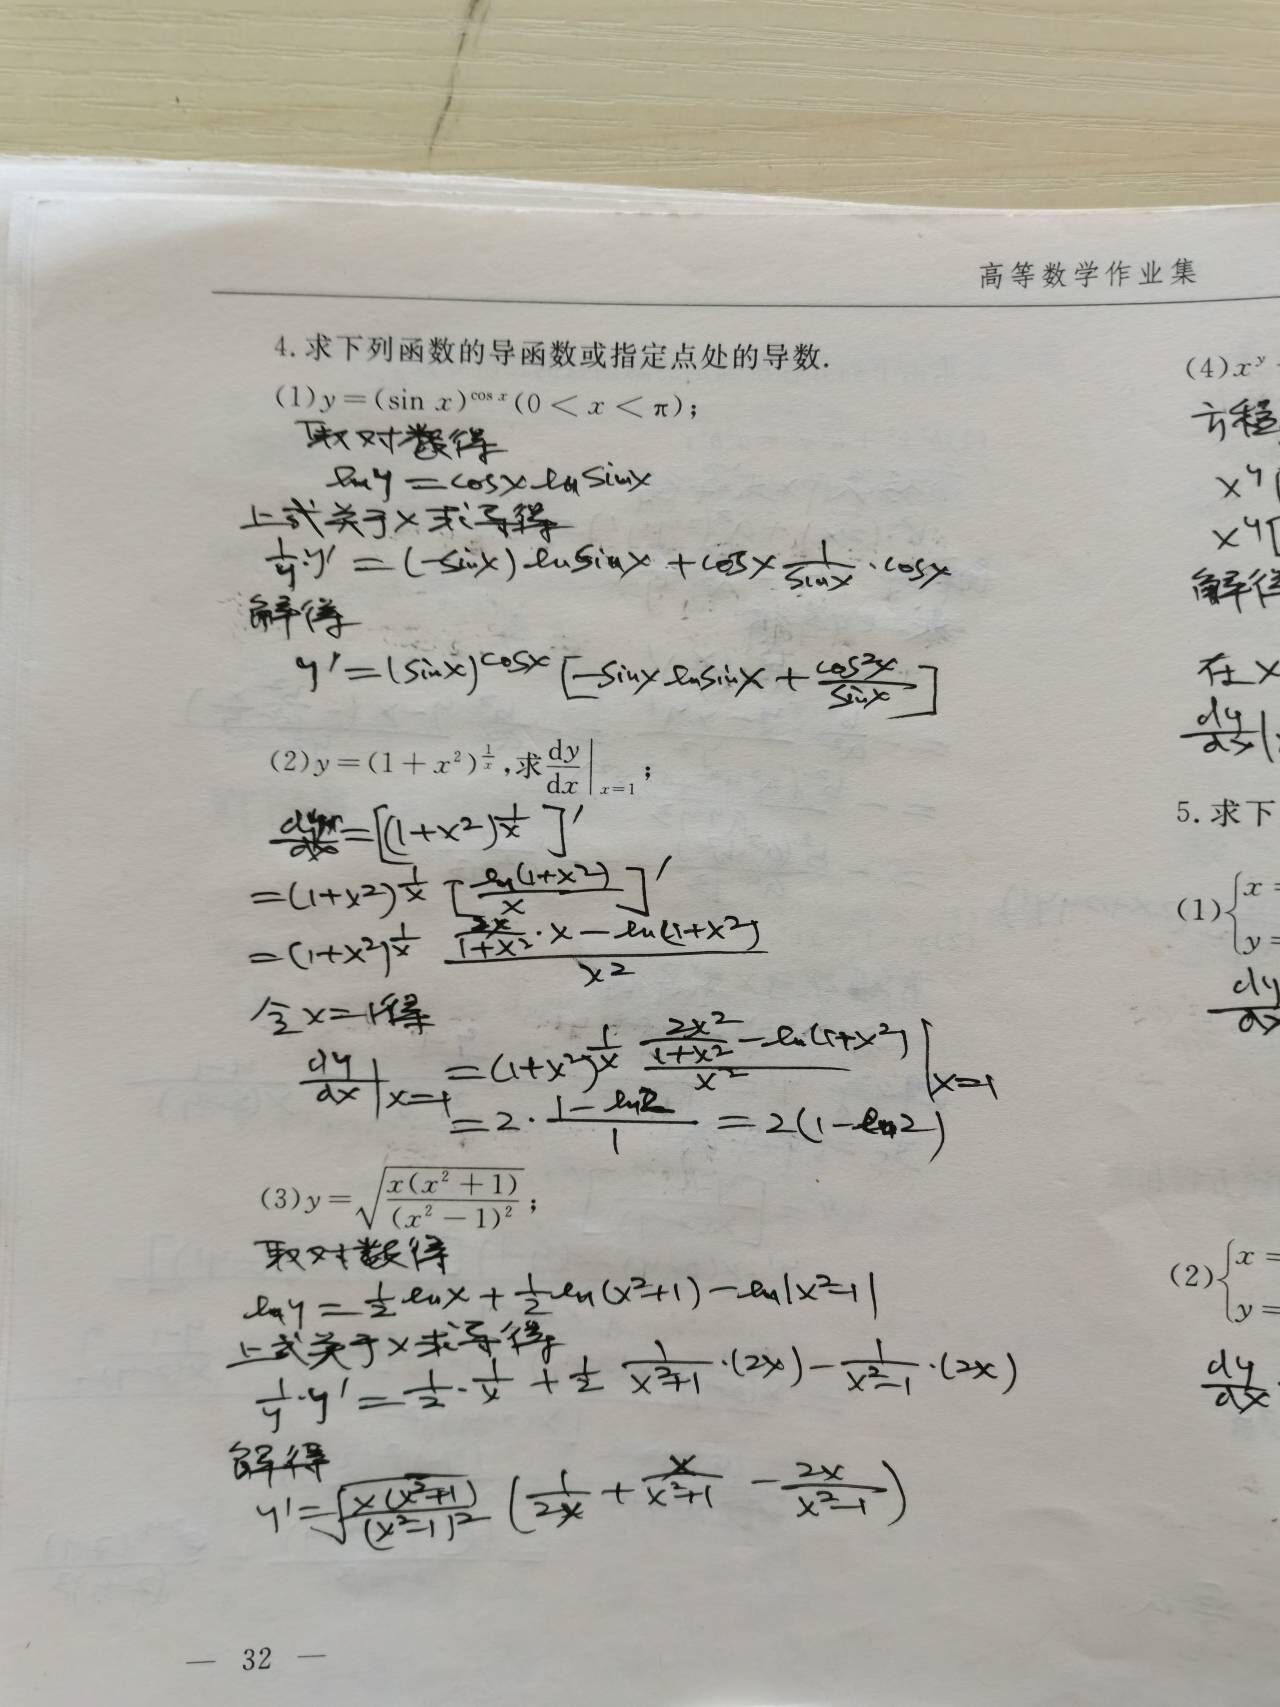 高等数学作业集
4.求下列函数的导函数或指定点处的导数.
(1) y=(sin x)^{cos x} (0<x<π);
取对数得
ln y = cosx ln sinx
上式关于x求导得
1/y · y' = (-sinx) ln sinx + cosx 1/sinx · cosx
解得
y' = (sinx)^{cosx} [-sinx ln sinx + cos²x/sinx]
(2) y=(1+x²)^{1/x}, 求 dy/dx|_{x=1};
dy/dx = [(1+x²)^{1/x}]'
= (1+x²)^{1/x} [ln(1+x²)/x]'
= (1+x²)^{1/x} (2x/(1+x²) · x - ln(1+x²))/x²
令x=1得
dy/dx|_{x=1} = (1+x²)^{1/x} (2x²/(1+x²) - ln(1+x²))/x² |_{x=1}
= 2 · (1-ln2)/1 = 2(1-ln2)
(3) y=√(x(x²+1)/(x²-1)²);
取对数得
ln y = 1/2 ln x + 1/2 ln(x²+1) - ln|x²-1|
上式关于x求导得
1/y · y' = 1/2 · 1/x + 1/2 1/(x²+1) · (2x) - 1/(x²-1) · (2x)
解得
y' = √(x(x²+1)/(x²-1)²) (1/2x + x/(x²+1) - 2x/(x²-1))
— 32 —
(4) x^y
方程
x^y [
x^y [
解得
在x
dy/dx|
5.求下
(1) { x=
y=
dy/dx
(2) { x=
y=
dy/dx